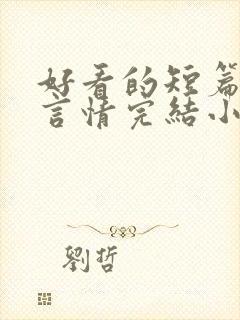 好看的短篇
言情完結小
劉哲